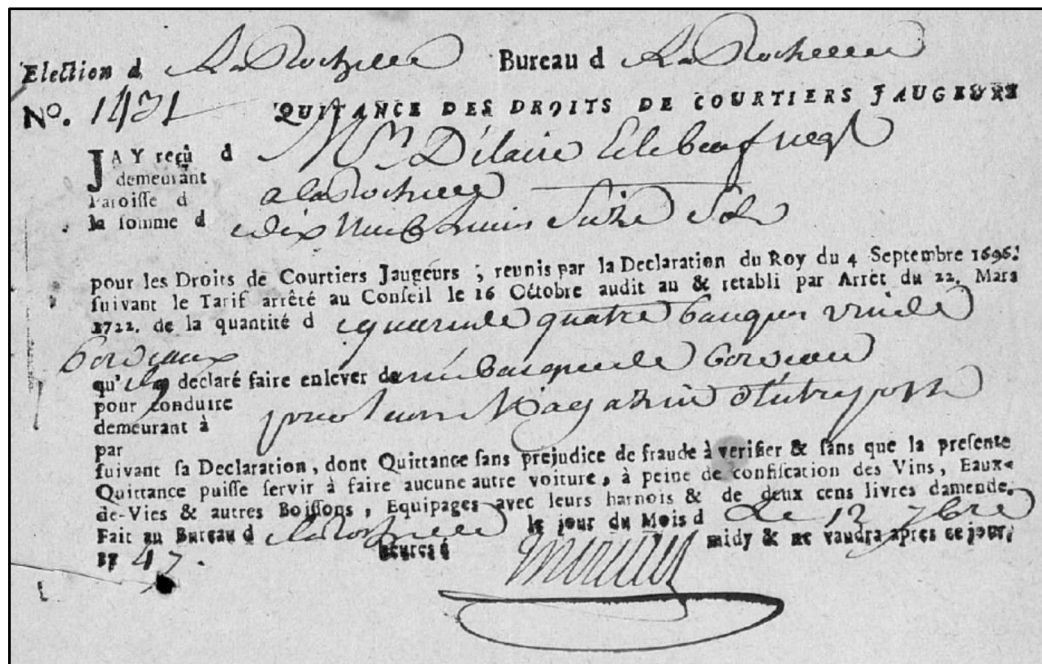 Election d La Rochelle Bureau d La Rochelle
No. 1431 QUITANCE DES DROITS DE COURTIERS JAUGEURS
JAY reçû d Mrs Delaire Lelebeuf negt
demeurant
Paroisse d a la Rochelle
la somme d dix neuf Sols
pour les Droits de Courtiers Jaugeurs ; reunis par la Declaration du Roy du 4 Septembre 1696.
suivant le Tarif arrêté au Conseil le 16 Octobre audit an & retabli par Arrêt du 22. Mars
1722. de la quantité d quarante quatre bariques vin de
Bordeaux
qu'il a declaré faire enlever de Bordeaux
pour conduire pour leur Magazin
demeurant à
par
suivant sa Declaration, dont Quittance sans prejudice de fraude à verifier & sans que la presente
Quittance puisse servir à faire aucune autre voiture, à peine de confiscation des Vins, Eaux-
de-Vies & autres Boissons, Equipages avec leurs harnois & de deux cens livres damende.
Fait au Bureau d la Rochelle le jour du Mois d Le 12 7bre
1747. heures d midy & ne vaudra après ce jour.